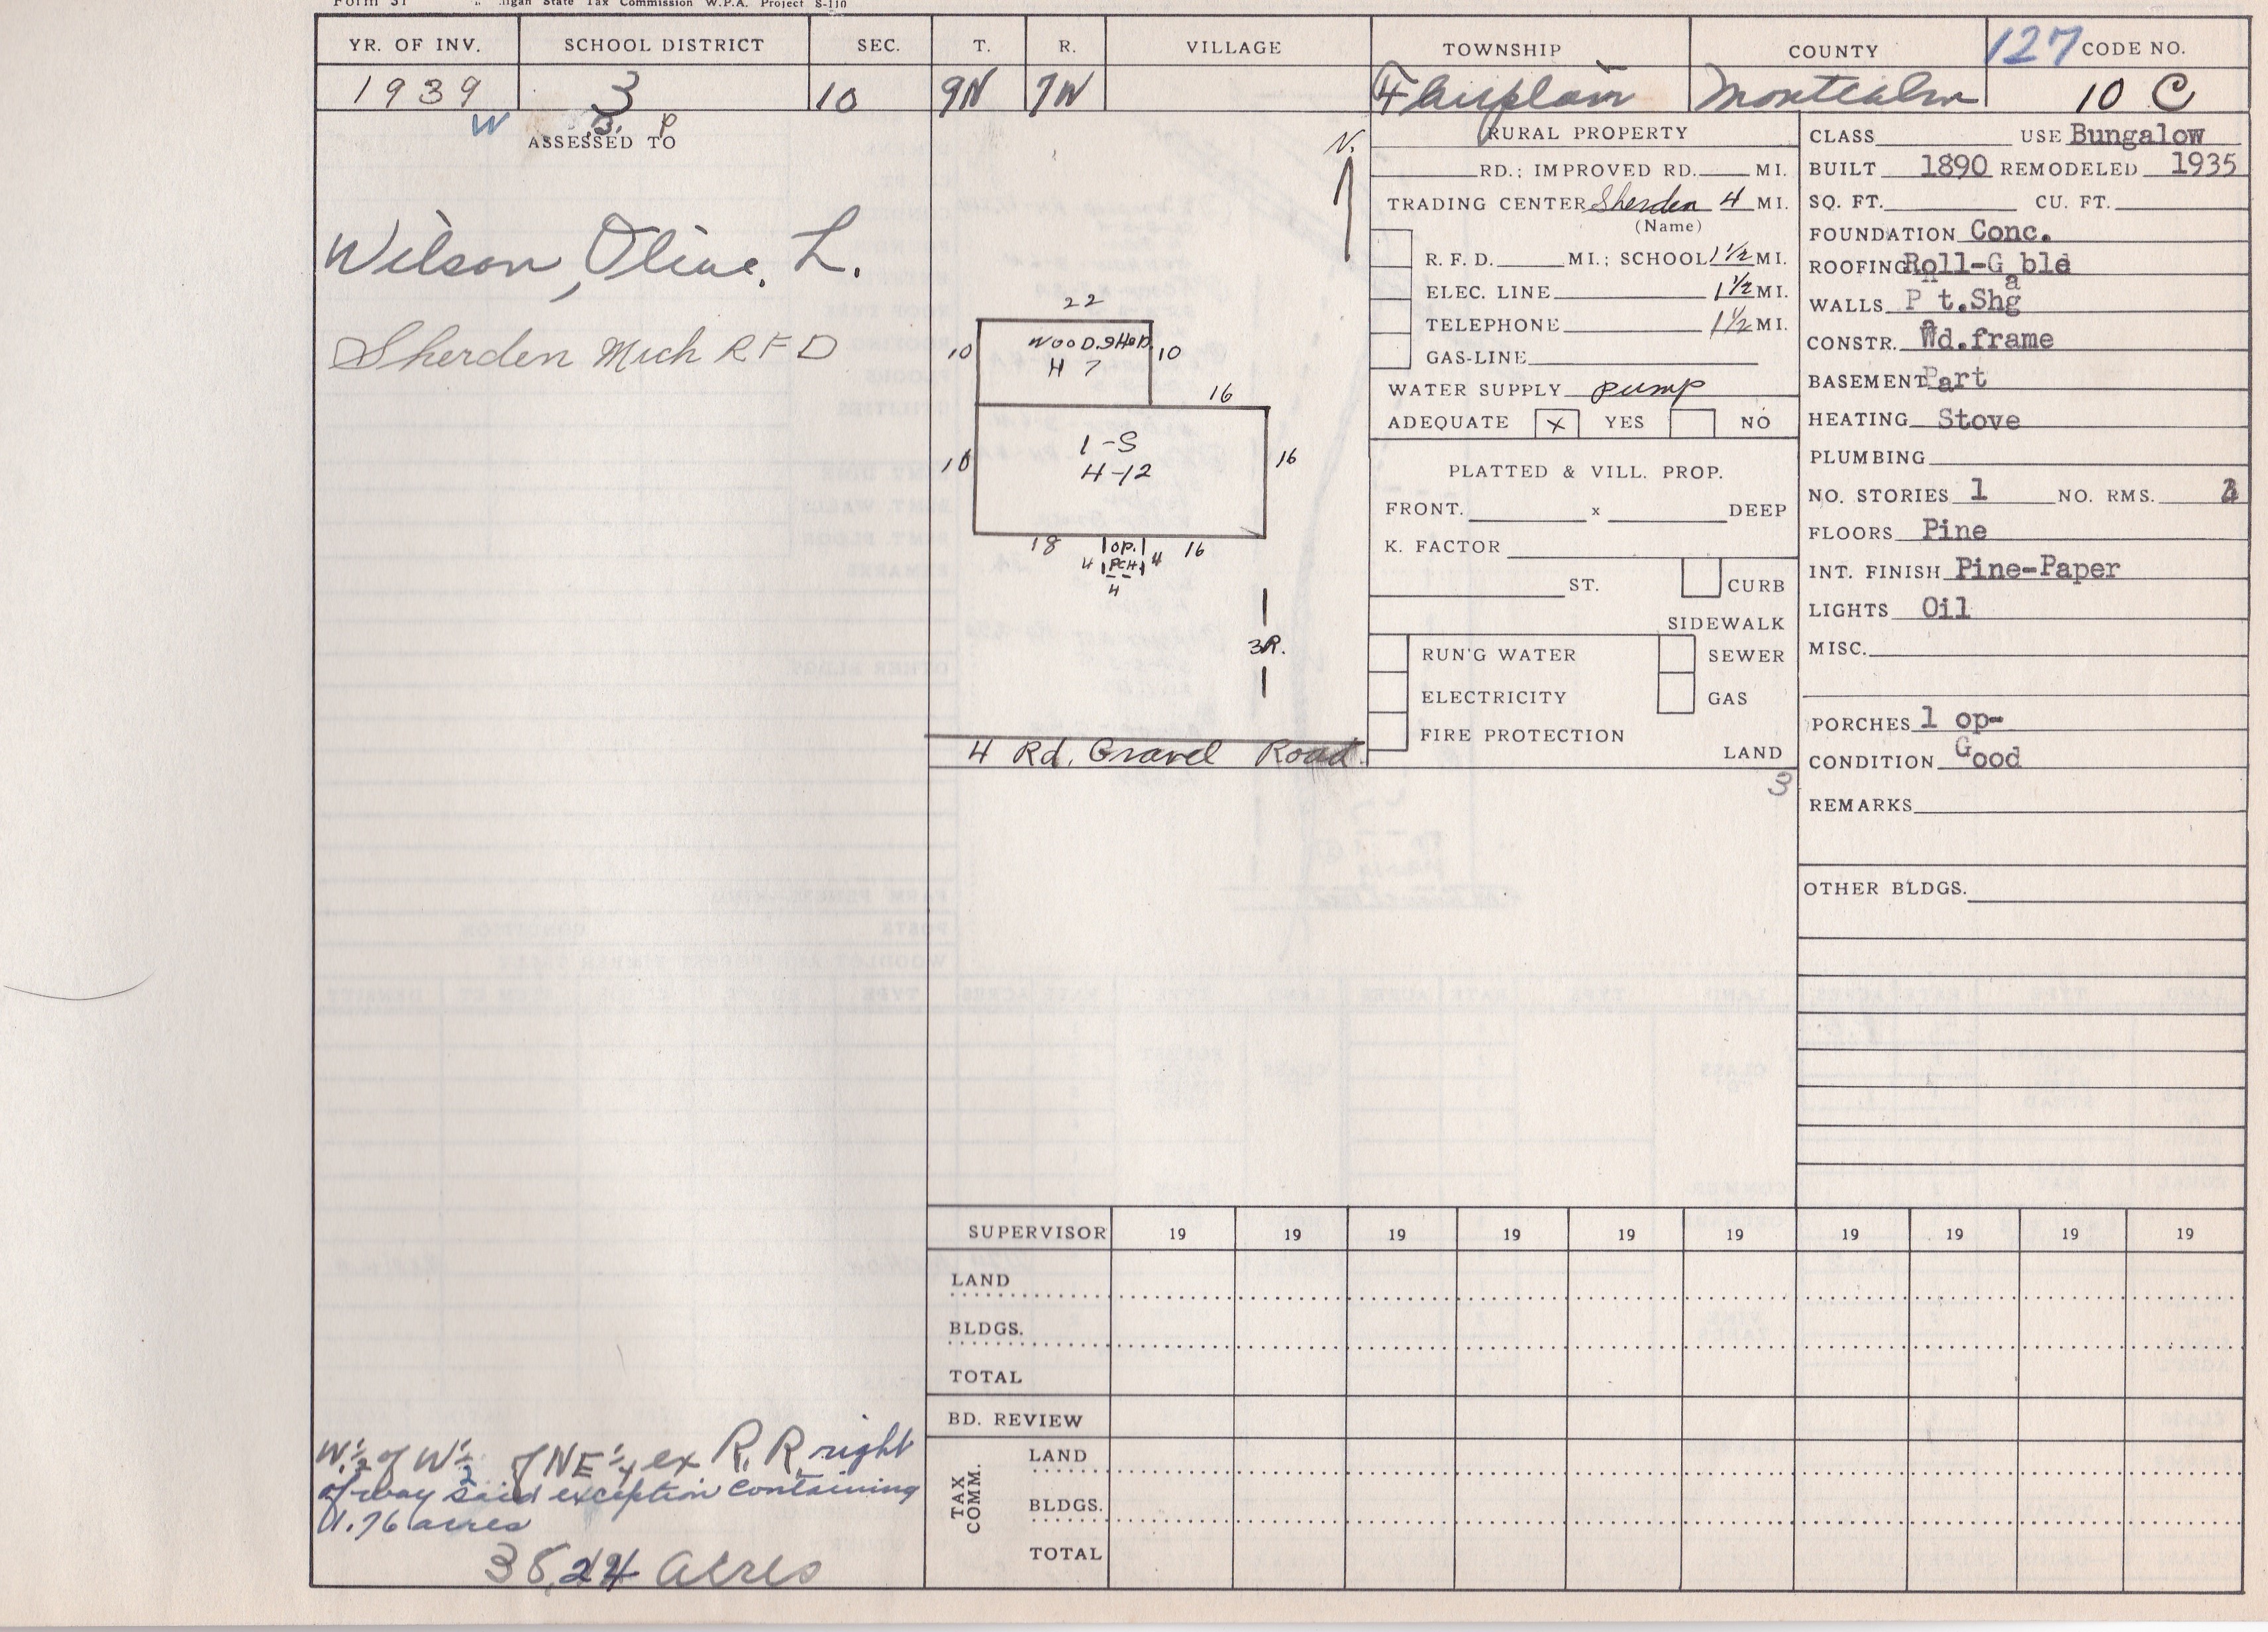 Form 31 igan State Tax Commission W.P.A. Project S-110
YR. OF INV. SCHOOL DISTRICT SEC. T. R. VILLAGE TOWNSHIP COUNTY 127 CODE NO.
1939 3 10 9N 7W Fairplain Montcalm 10 C
W B. P
ASSESSED TO
Wilson, Olive. L.
Sherden Mich R F D
N.
22
10 WOODSHED 10
H 7
16
10 1-S 16
H-12
18 OP. 16
4 PCH 4
4
3R.
4 Rd. Gravel Road.
RURAL PROPERTY
RD.; IMPROVED RD. MI.
TRADING CENTER Sherden 4 MI.
(Name)
R. F. D. MI.; SCHOOL 1 1/2 MI.
ELEC. LINE 1 1/2 MI.
TELEPHONE 1 1/2 MI.
GAS-LINE
WATER SUPPLY pump
ADEQUATE X YES NO
PLATTED & VILL. PROP.
FRONT. x DEEP
K. FACTOR
ST. CURB
SIDEWALK
RUN'G WATER SEWER
ELECTRICITY GAS
FIRE PROTECTION
LAND
3
CLASS USE Bungalow
BUILT 1890 REMODELED 1935
SQ. FT. CU. FT.
FOUNDATION Conc.
ROOFING Roll-Gable
WALLS Pat.Shg
CONSTR. Wd.frame
BASEMENT Part
HEATING Stove
PLUMBING
NO. STORIES 1 NO. RMS.
FLOORS Pine
INT. FINISH Pine-Paper
LIGHTS Oil
MISC.
PORCHES 1 op-
CONDITION Good
REMARKS
OTHER BLDGS.
SUPERVISOR 19 19 19 19 19 19 19 19 19 19
LAND
BLDGS.
TOTAL
BD. REVIEW
TAX COMM.
LAND
BLDGS.
TOTAL
W. 1/2 of W 1/2 of NE 1/4 ex R. R. right
of way said exception containing
1.76 acres
38.24 acres